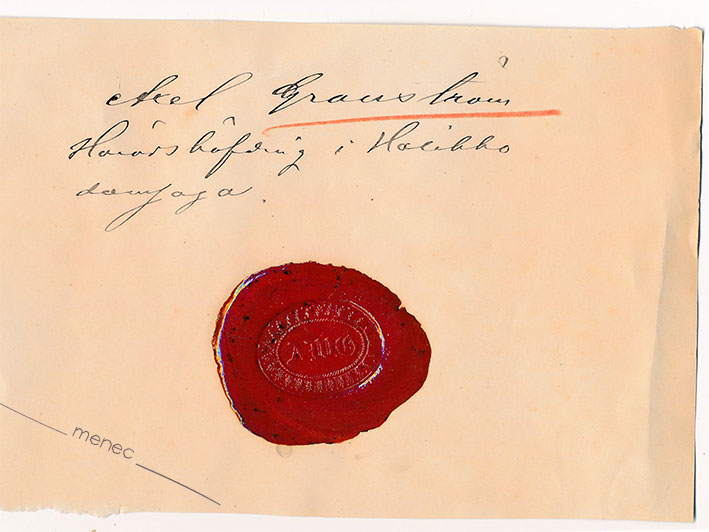 Axel Granström
Häradshöfding i Halikko
domsaga.
A.W.G
menec